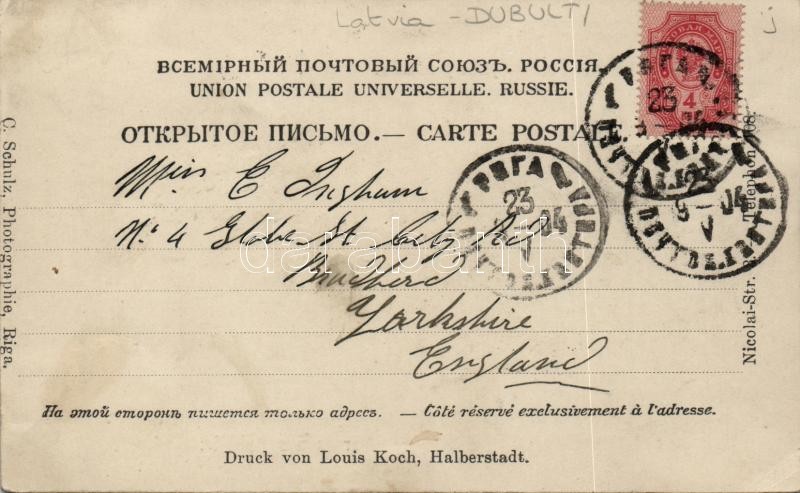 Latvia - DUBULTI
j
ВСЕМІРНЫЙ ПОЧТОВЫЙ СОЮЗЪ. РОССІЯ.
UNION POSTALE UNIVERSELLE. RUSSIE.
ОТКРЫТОЕ ПИСЬМО. — CARTE POSTALE
4
РИГА
23
РИГА
23
04
V
РИГА
5 – 04
V
Miss E Ingham
No 4 Globe St City Rd
Bradford
Yorkshire
England
darabanth
C. Schulz, Photographie, Riga.
Nicolai-Str. Telephon
На этой сторонѣ пишется только адресъ. — Côté réservé exclusivement à l'adresse.
Druck von Louis Koch, Halberstadt.